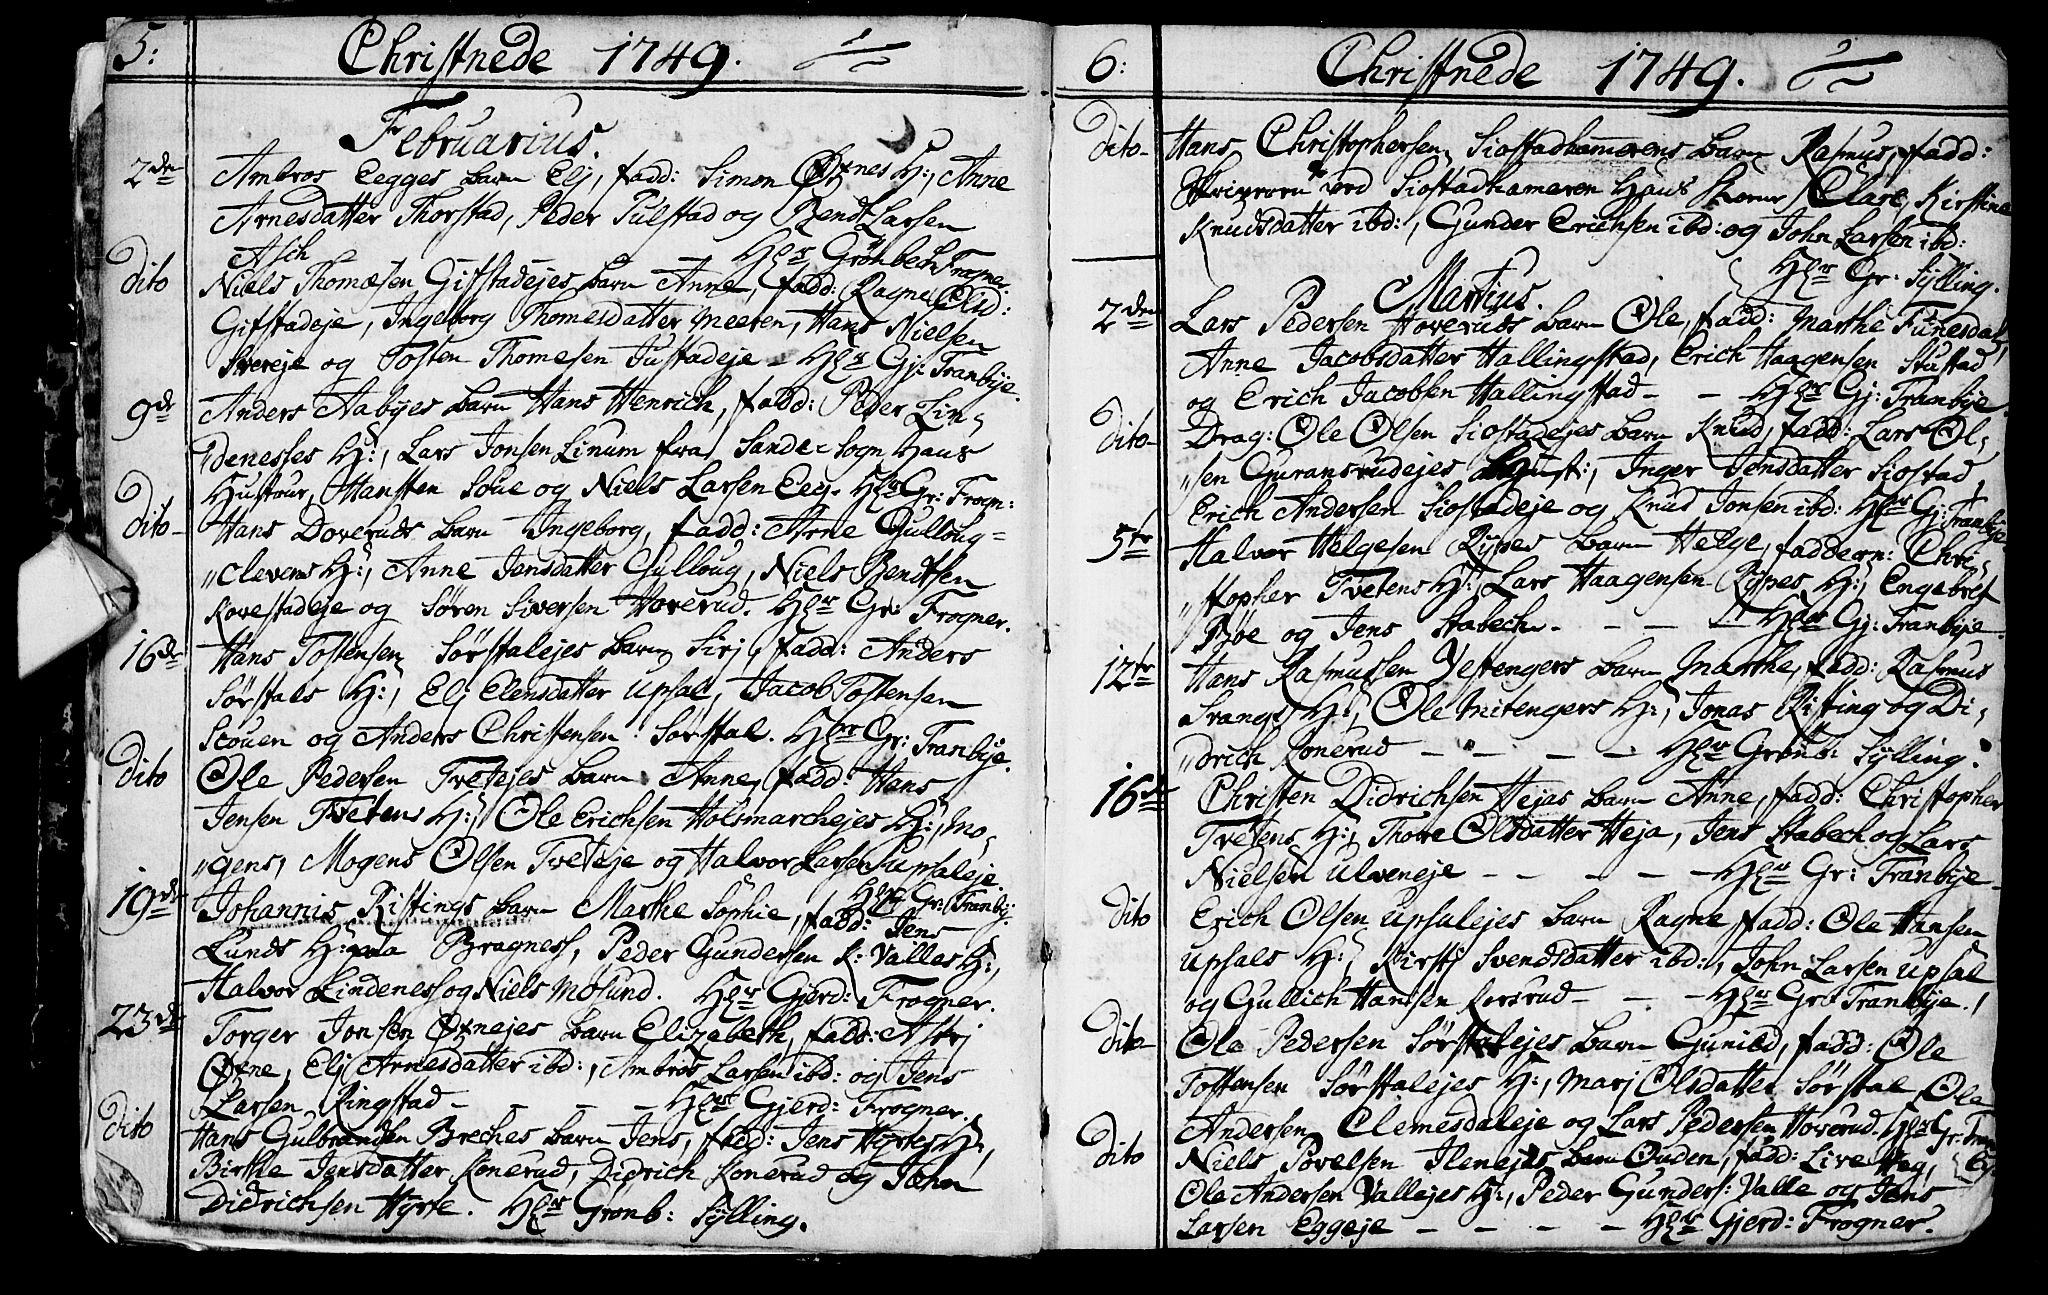 5:
Christnede 1749.
Februarius
2den Ambros Eegges barn Elj, fadd: Simon Øxnes H:, Anne
Arnesdatter Thorstad, Peder Tulstad og Bendt Larsen
Asch Hr Grønbech Frogner.
dito Niels Thomæsen Gifstadejes barn Anne, fadd: Ragne Olsd:
Gifstadeje, Ingeborg Thomesdatter Meeren, Hans Nielsen
og Tosten Thomesen Justadeje - Hr Gj: Tranbye.
9de Anders Aabyes barn Hans Henrich, fadd: Peder Lin„
„denesses H:, Lars Jonsen Linum fra Sande Sogn Hans
Hustrue, Hansten Soue og Niels Larsen Eeg. Hr Gr: Frogn:
dito- Hans Doveruds barn Ingeborg, fadd: Arne Gulloug=
„clevens H:, Anne Jensdatter Gulloug, Niels Bendtsen
Kovestadeje og Søren Siversen Hoverud. Hr Gr: Frogner.
16de Hans Tostensen Sørstalejes barn Sirj, fadd: Anders
Sørstals H:, Elj Elensdatter Upsal, Jacob Tostensen
Scouen og Anders Christensen Sørstal. Hr Gr: Tranbye.
dito Ole Pedersen Tvetejes barn Anne, fadd: Hans
Jensen Tvetens H:, Ole Erichsen Holsmarchejes H:, Mo„
„gens, Mogens Olsen Tveteje og Halvor Larsen Upsaleje.
Hr Gr: Tranby:
19de Johannis Ristings barn Marthe Sophie, fadd: Jens
Lunds H: fra Bragness, Peder Gundersen K: Valles H:,
Halvor Lindeness og Niels Mosund. Hr Gjerd: Frogner.
23de Torger Jonsen Øxnejes barn Elizabeth, fadd: Askj
Øxne, Elj Arnesdatter ibd:, Ambros Larsen ibd: og Jens
Larsen Ringstad - - - - Hr Gjerd: Frogner.
dito Hans Gulbrandsen Breches barn Jens, fadd: Jens Hyrtes H:,
Birthe Jensdatter Konerud, Didrich Konerud og John
Didrichsen Hyrte. Hr Grønb: Sylling.
6:
Christnede 1749.
dito- Hans Christophersen Siostadkamerens barn Rasmus, fadd:
ved Siostadkameren Hans Clare Kirstine
Knudsdatter ibd:, Gunder Erichsen ibd: og John Larsen ibd:
Hr Gr: Sylling.
Martius.
2den Lars Pedersen Hoveruds barn Ole, fadd: Marthe Funesdal,
Anne Jacobsdatter Hallingstad, Erich Haagensen Stustad
og Erich Jacobsen Hallingstad - - Hr Gj: Tranbye.
dito- Drag: Ole Olsen Siostadejes barn Knud, fadd: Lars Ol„
„sen Guransrudejes Hust:, Inger Jensdatter Siostad
Erich Andersen Siostadeje og Knud Jonsen ibd: Hr Gj: Tranbye.
5te Halvor Helgesen Rypes barn Helge, faddern: Chri„
„stopher Tvetens H:, Lars Haagensen Rypes H:, Engebret
Bøe og Jens Stabech - - - - Hr Gj: Tranbye.
12te Hans Rasmussen Vestengers barn Marthe, fadd: Rasmus
Svangs H:, Ole Mitengers H:, Jonas Risting og Di„
„drich Konerud - - - - Hr Grønb: Sylling.
16de Christen Didrichsen Hejas barn Anne, fadd: Christopher
Tvetens H:, Thore Olsdatter Heja, Jens Stabech og Lars
Nielsen Ulveneje - - - - Hr Gr: Tranbye
dito Erich Olsen Upsalejes barn Ragne, fadd: Ole Hansen
Upsals H:, Kirstj Svendsdatter ibd:, John Larsen Upsal
og Gullich Hansen Korsrud - - - Hr Gr: Tranbye.
dito- Ole Pedersen Sørstalejes barn Gunild, fadd: Ole
Tostensen Sørstalejes H:, Marj Olsdatter Sørstal, Ole
Andersen Clemesdaleje og Lars Pedersen Hoverud. Hr Gr: Tran
by:
dito Niels Povelsen Ilenejes barn Ouden, fadd: Live Hæg,
Ole Andersen Vallejes H:, Peder Gunders: Valle og Jens
Larsen Eggeje - - - - Hr Gjerd: Frogner.